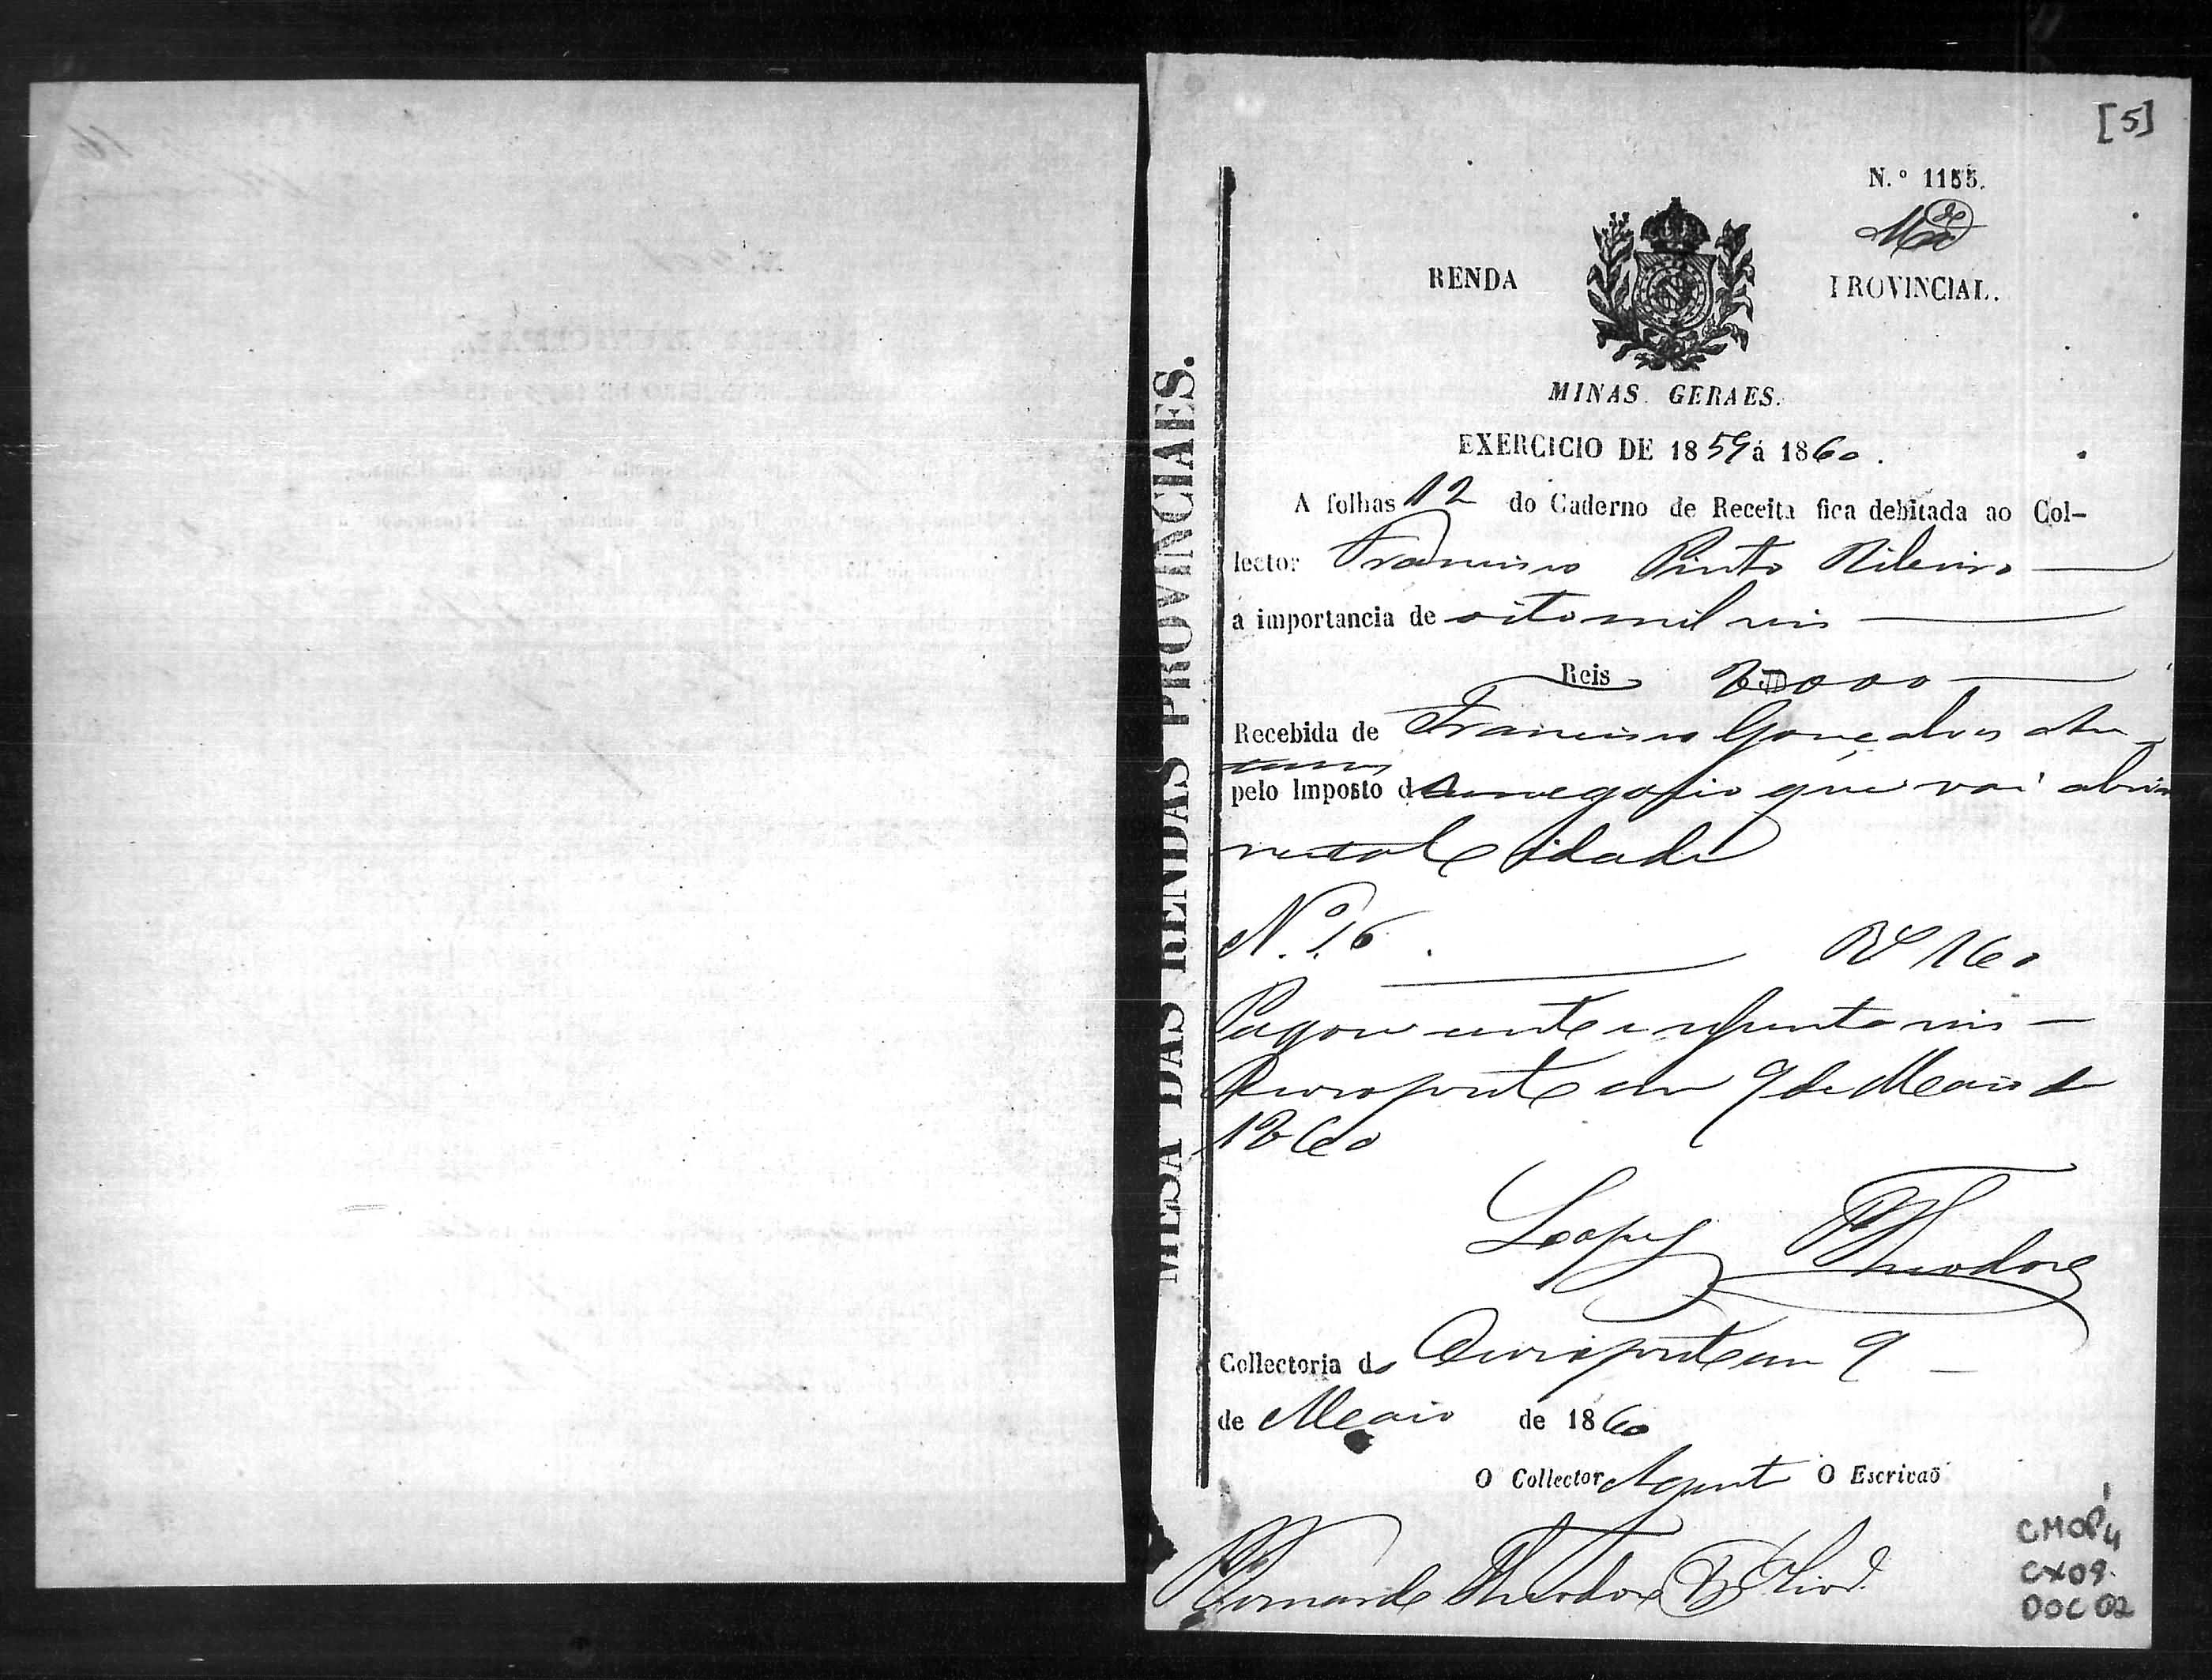 [5]
N.º 1155.
RENDA PROVINCIAL.
MINAS GERAES.
EXERCICIO DE 1859 á 1860.
A folhas 12 do Caderno de Receita fica debitada ao Col-
lector Francisco Pinto Ribeiro
a importancia de oito mil reis
Reis 8$000
Recebida de Francisco Gonçalves
pelo Imposto d negocio que vai abrir
nesta Cidade
N.º 16. Rs 160
Pagou cento e sessenta reis
Ouro preto em 9 de Maio de
1860
Lopes Theodoro
Collectoria do Ouro preto em 9
de Maio de 1860
O Collector Agente O Escrivaõ
Bernardo Theodoro
MESA DAS RENDAS PROVINCIAES.
CMOP
CX09
DOC 02